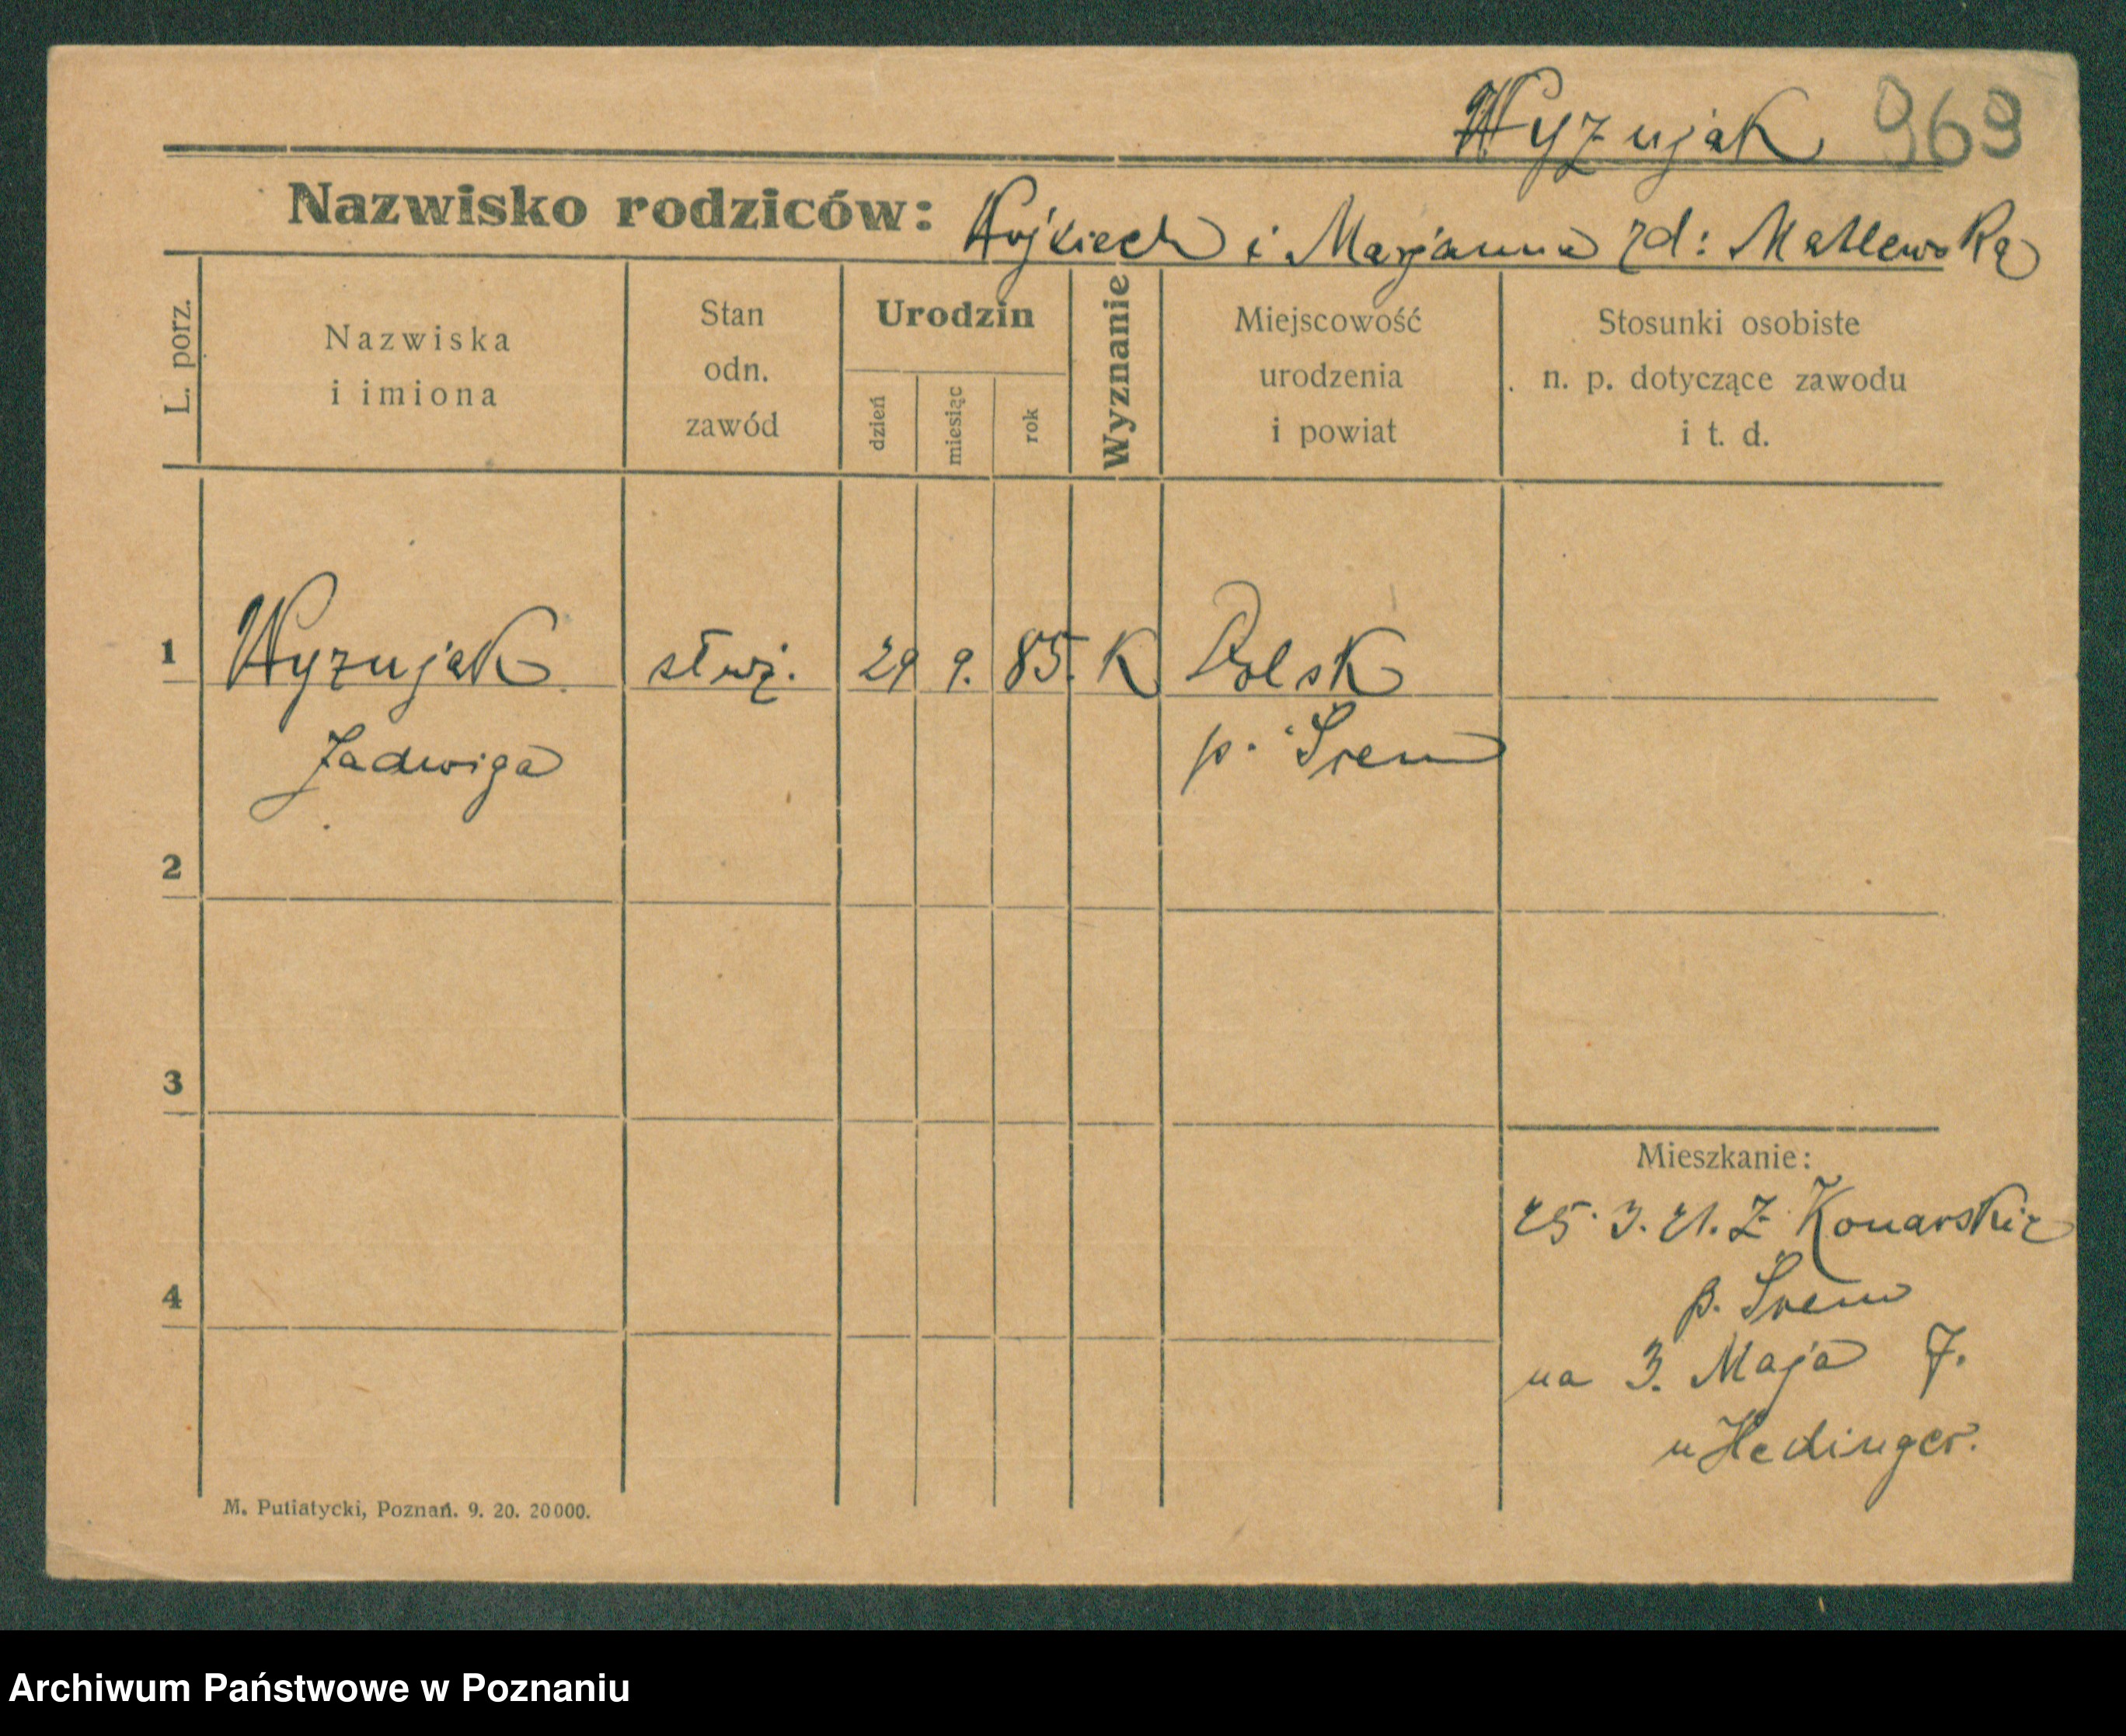 Wyzujak 969
Nazwisko rodziców: Wojciech i Marjanna zd: Matlewska
L. porz.
Nazwiska
i imiona
Stan
odn.
zawód
Urodzin
dzień
miesiąc
rok
Wyznanie
Miejscowość
urodzenia
i powiat
Stosunki osobiste
n. p. dotyczące zawodu
i t. d.
1 Wyzujak służ. 29 9. 85. K Dolsk
Jadwiga p. Śrem
2
3
Mieszkanie:
25. 3. 21. Z Konarskie
p. Śrem
4
na 3. Maja 7.
u Hedinger.
M. Putiatycki, Poznań. 9. 20. 20000.
Archiwum Państwowe w Poznaniu